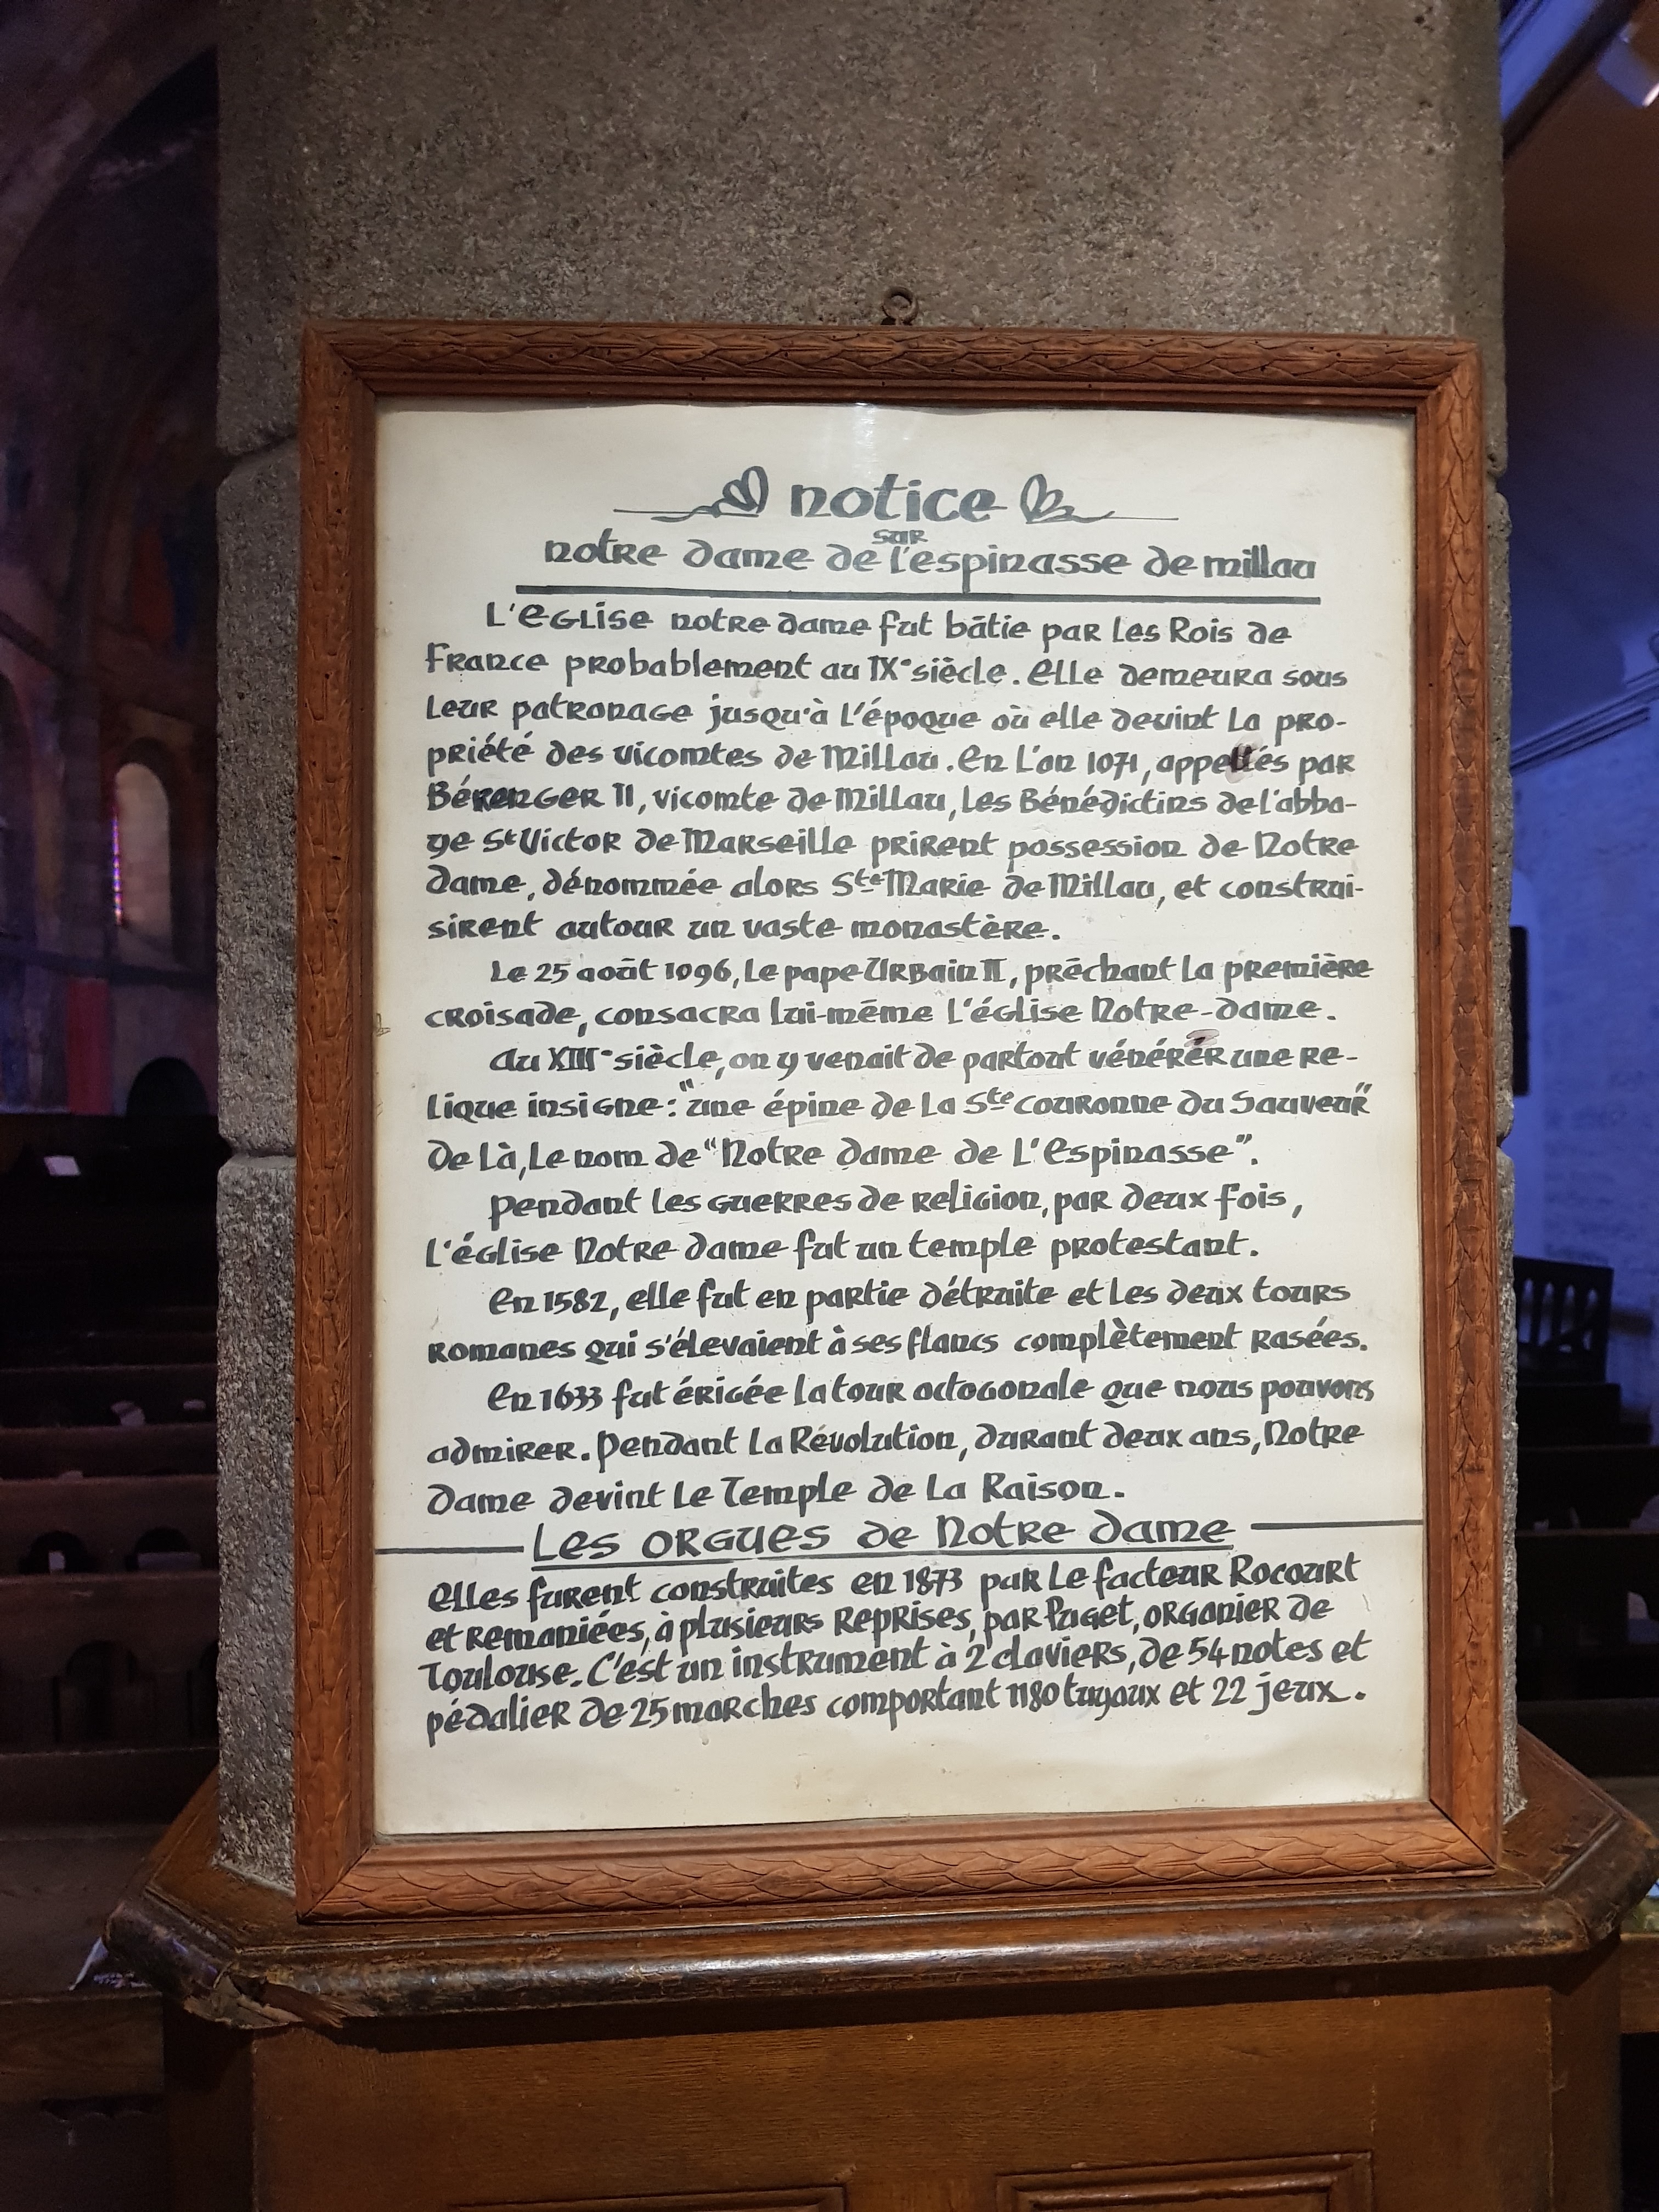 notice
sur
notre dame de l'espinasse de millau
L'Eglise notre dame fut bâtie par les Rois de
France probablement au IXe siècle. Elle demeura sous
leur patronage jusqu'à l'époque où elle devint la pro-
priété des vicomtes de Millau. En l'an 1071, appellés par
Bérenger II, vicomte de Millau, les Bénédictins de l'abba-
ye St Victor de Marseille prirent possession de Notre
dame, dénommée alors Ste Marie de Millau, et construi-
sirent autour un vaste monastère.
Le 25 août 1096, le pape Urbain II, prêchant la première
croisade, consacra lui-même l'église Notre-dame.
Au XIIIe siècle, on y venait de partout vénérer une re-
lique insigne: "une épine de la Ste Couronne du Sauveur"
De là, le nom de "Notre Dame de L'Espinasse".
Pendant les guerres de religion, par deux fois,
l'église Notre Dame fut un temple protestant.
En 1582, elle fut en partie détruite et les deux tours
romanes qui s'élevaient à ses flancs complètement rasées.
En 1633 fut érigée la tour octogonale que nous pouvons
admirer. Pendant la Révolution, durant deux ans, Notre
Dame devint le Temple de la Raison.
Les orgues de Notre Dame
Elles furent construites en 1873 par le facteur Rocourt
et remaniées, à plusieurs reprises, par Puget, organier de
Toulouse. C'est un instrument à 2 claviers, de 54 notes et
pédalier de 25 marches comportant 1180 tuyaux et 22 jeux.